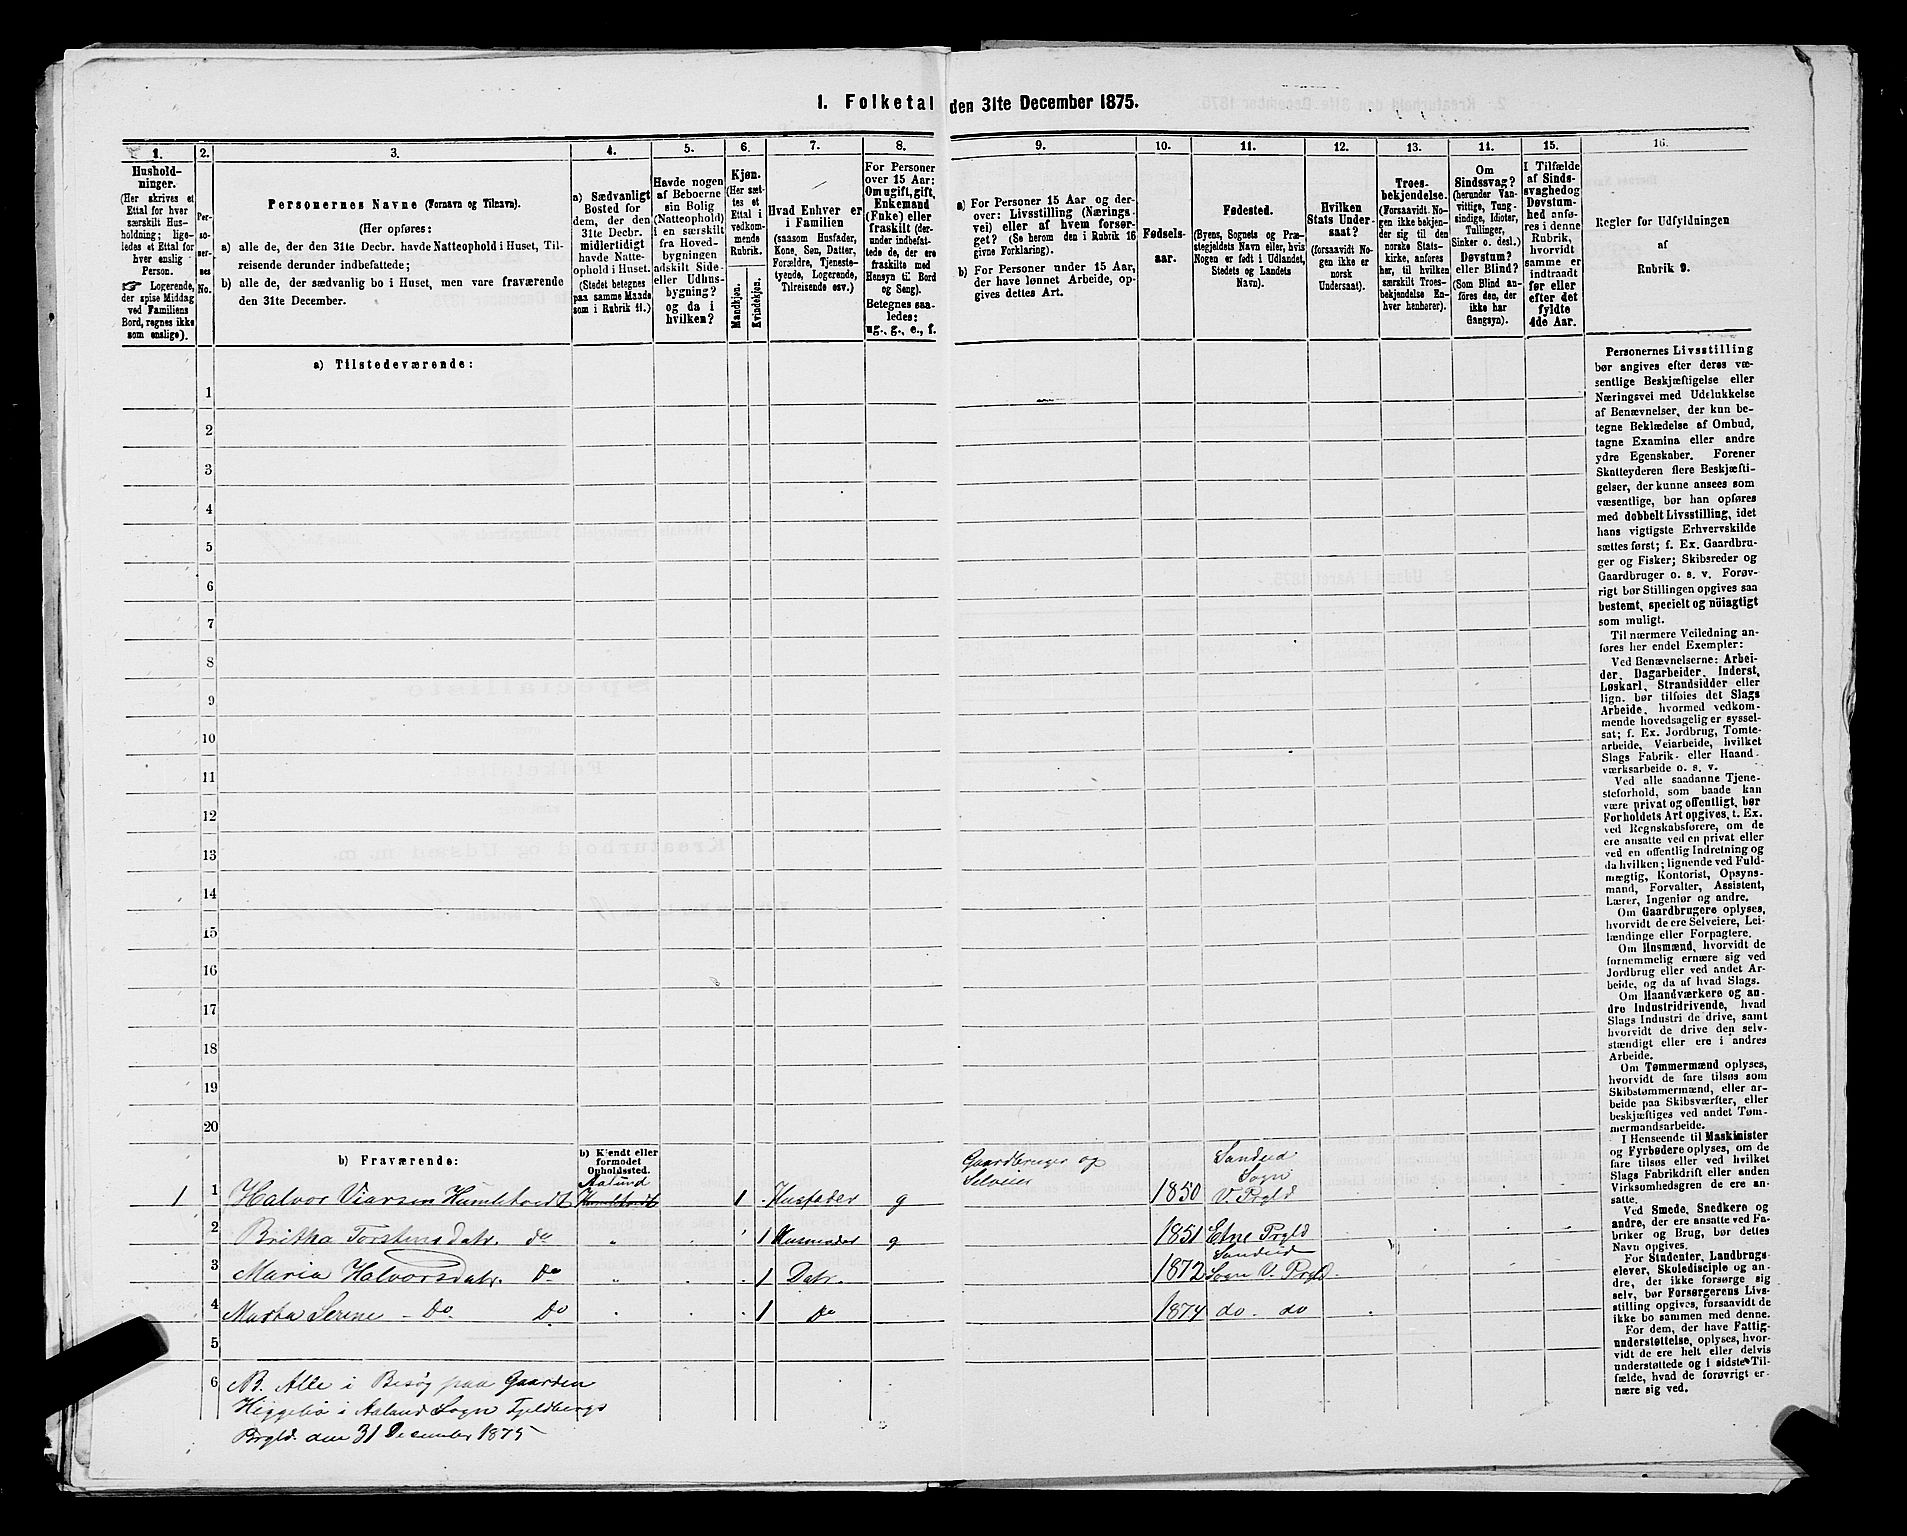 1. Folketal den 31te December 1875.
1.
Hushold-
ninger.
(Her skrives et
Ettal for hver
særskilt Hus-
holdning; lige-
ledes et Ettal for
hver enslig
Person.
☞ Logerende,
der spise Middag
ved Familiens
Bord, regnes ikke
som enslige).
2.
Per-
so-
ner-
nes
No.
3.
Personernes Navne (Fornavn og Tilnavn).
(Her opføres:
a) alle de, der den 31te Decbr. havde Natteophold i Huset, Til-
reisende derunder indbefattede;
b) alle de, der sædvanlig bo i Huset, men vare fraværende
den 31te December.
4.
a) Sædvanligt
Bosted for
dem, der den
31te Decbr.
midlertidigt
havde Natte-
ophold i Huset.
(Stedet betegnes
paa samme Maade
som i Rubrik 11.)
5.
Havde nogen
af Beboerne
sin Bolig
(Natteophold)
i en særskilt
fra Hoved-
bygningen
adskilt Side-
eller Udhus-
bygning?
og da i
hvilken?
6.
Kjøn.
(Her sæt-
tes et
Ettal i
vedkom-
mende
Rubrik.
Mandkjøn.
Kvindekjøn.
7.
Hvad Enhver er
i Familien
(saasom Husfader,
Kone, Søn, Datter,
Forældre, Tjeneste-
tyende, Logerende,
Tilreisende osv.)
8.
For Personer
over 15 Aar:
Om ugift, gift,
Enkemand
(Enke) eller
fraskilt (der-
under indbefat-
tede de, der ere
fraskilte med
Hensyn til Bord
og Seng).
Betegnes saa-
ledes:
ug., g., e., f.
9.
a) For Personer 15 Aar og der-
over: Livsstilling (Nærings-
vei) eller af hvem forsør-
get? (Se herom den i Rubrik 16
givne Forklaring).
b) For Personer under 15 Aar,
der have lønnet Arbeide, op-
gives dettes Art.
10.
Fødsels-
aar.
11.
Fødested.
(Byens, Sognets og Præ-
stegjeldets Navn eller, hvis
Nogen er født i Udlandet,
Stedets og Landets
Navn).
12.
Hvilken
Stats Under-
saat?
(forsaavidt No-
gen ikke er
norsk
Undersaat).
13.
Troes-
bekjendelse.
(Forsaavidt No-
gen ikke bekjen-
der sig til den
norske Stats-
kirke, anføres
her, til hvilken
særskilt Troes-
bekjendelse En-
hver henhører).
14.
Om
Sindssvag?
(herunder Van-
vittige, Tung-
sindige, Idioter,
Tullinger,
Sinker o. desl.)
Døvstum?
eller Blind?
(Som Blind an-
føres den, der
ikke har
Gangsyn).
15.
I Tilfælde
af Sinds-
svaghed og
Døvstum-
hed anfø-
res i denne
Rubrik,
hvorvidt
samme er
indtraadt
før eller
efter det
fyldte
4de Aar.
16.
Regler for Udfyldningen
af
Rubrik 9.
a) Tilstedeværende:
1
2
3
4
5
6
7
8
9
10
11
12
13
14
15
16
17
18
19
20
b) Fraværende:
b) Kjendt eller
formodet
Opholdssted.
1 1 Halvor Viarsen Humlehvedt Aalund Humlehvedt 1 Husfader g Gaardbruger og Selveier 1850 Sandeid Sogn V Prgld
2 Britha Torstensdatr. do „ 1 Husmoder g 1851 Etne Prgld
3 Maria Halvorsdatr. Do „ 1 Datr. 1872 Sandeid Sogn V. Prgld.
4 Marta Serine - Do Do 1 Do 1874 do. do
5
6 NB. Alle i Besøg paa Gaarden
Higgebø i Aaland Sogn Fjeldbergs
Prgld. den 31 December 1875
Personernes Livsstilling
bør angives efter deres væ-
sentlige Beskjæftigelse eller
Næringsvei med Udelukkelse
af Benævnelser, der kun be-
tegne Beklædelse af Ombud,
tagne Examina eller andre
ydre Egenskaber. Forener
Skatteyderen flere Beskjæfti-
gelser, der kunne ansees som
væsentlige, bør han opføres
med dobbelt Livsstilling, idet
hans vigtigste Erhvervskilde
sættes først; f. Ex. Gaardbru-
ger og Fisker; Skibsreder og
Gaardbruger o. s. v. Forøv-
rigt bør Stillingen opgives saa
bestemt, specielt og nøiagtigt
som muligt.
Til nærmere Veiledning an-
føres her endel Exempler:
Ved Benævnelserne: Arbei-
der, Dagarbeider, Inderst,
Løskarl, Strandsidder eller
lign. bør tilføies det Slags
Arbeide, hvormed vedkom-
mende hovedsagelig er syssel-
sat; f. Ex. Jordbrug, Tomte-
arbeide, Veiarbeide, hvilket
Slags Fabrik- eller Haand-
værksarbeide o. s. v.
Ved alle saadanne Tjene-
steforhold, som baade kan
være privat og offentligt, bør
Forholdets Art opgives, t. Ex.
ved Regnskabsførere, om de
ere ansatte ved en privat eller
ved en offentlig Indretning og
da hvilken; lignende ved Fuld-
mægtig, Kontorist, Opsyns-
mand, Forvalter, Assistent,
Lærer, Ingeniør og andre.
Om Gaardbrugere oplyses,
hvorvidt de ere Selveiere, Lei-
lændinge eller Forpagtere.
Om Husmænd, hvorvidt de
fornemmelig ernære sig ved
Jordbrug eller ved andet Ar-
beide, og da af hvad Slags.
Om Haandværkere og an-
dre Industridrivende, hvad
Slags Industri de drive, samt
hvorvidt de drive den selv-
stændigt eller ere i andres
Arbeide.
Om Tømmermænd oplyses,
hvorvidt de fare tilsøs som
Skibstømmermænd, eller ar-
beide paa Skibsværfter, eller
beskjæftiges ved andet Tøm-
mermandsarbeide.
I Henseende til Maskinister
og Fyrbødere oplyses, om de
fare tilsøs eller ved hvilket
Slags Fabrikdrift eller anden
Virksomhedsgren de ere an-
satte.
Ved Smede, Snedkere og
andre, der ere ansatte ved Fa-
briker og Brug, bør dettes
Navn opgives.
For Studenter, Landbrugs-
elever, Skoledisciple og an-
dre, der ikke forsørge sig
selv, bør Forsørgerens Livs-
stilling opgives, forsaavidt de
ikke bo sammen med denne.
For dem, der have Fattig-
understøttelse, oplyses, hvor-
vidt de ere helt eller delvis
understøttede og i sidste Til-
fælde, hvad de forøvrigt er-
nære sig ved.